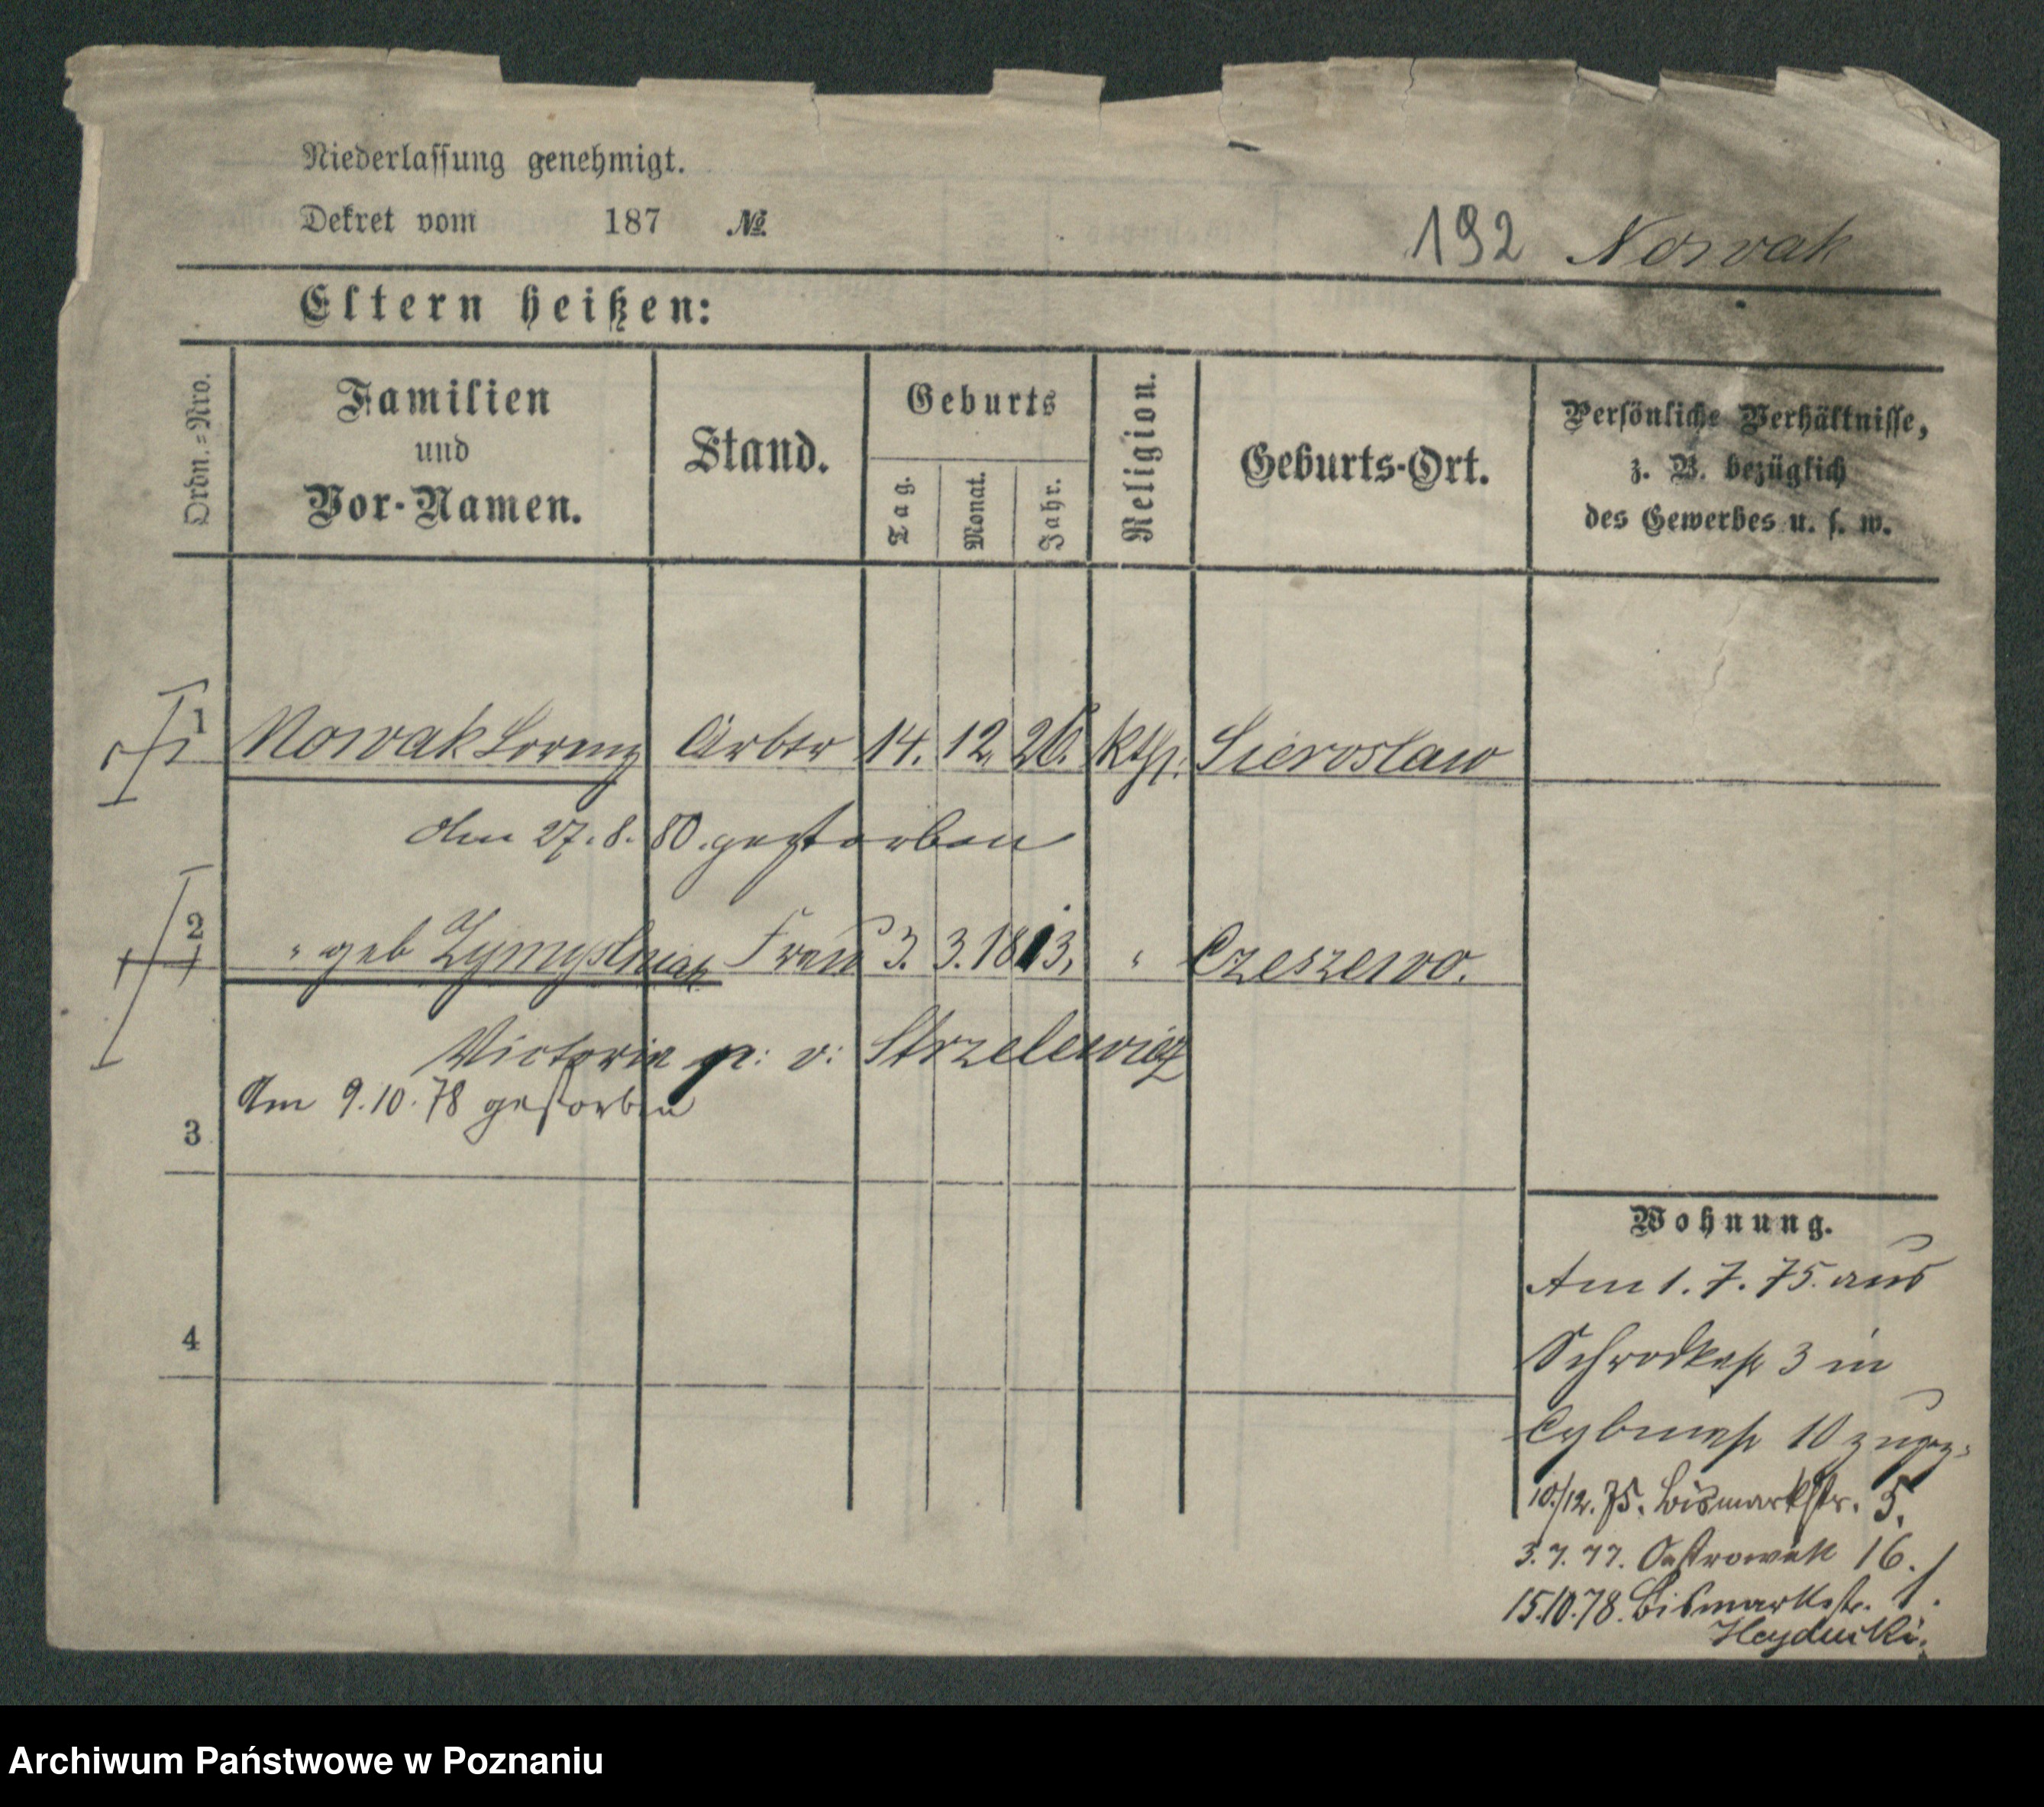 Niederlassung genehmigt.
Dekret vom 187 №
192 Nowak
Eltern heißen:
Ordn.=Nro.
Familien
und
Vor-Namen.
Stand.
Geburts
Tag.
Monat.
Jahr.
Religion.
Geburts-Ort.
Persönliche Verhältnisse,
z. B. bezüglich
des Gewerbes u. s. w.
1 Nowak Lorenz Arbtr 14. 12. 26. kth. Sieroslaw
den 27. 8. 80. gestorben
2 " geb Frau 3. 3. 1813. " Czeszewo.
Victoria v: Strzelewicz
Am 9. 10. 78 gestorben
3
4
Wohnung.
Am 1. 7. 75. aus
Schrodkastr 3 in
Cybinastr 10 zugez.
10/12. 75. Bismarkstr. 5.
3. 7. 77. Ostrowek 16.
15.10.78. Bismarkstr. 1.
Hayducki.
Archiwum Państwowe w Poznaniu